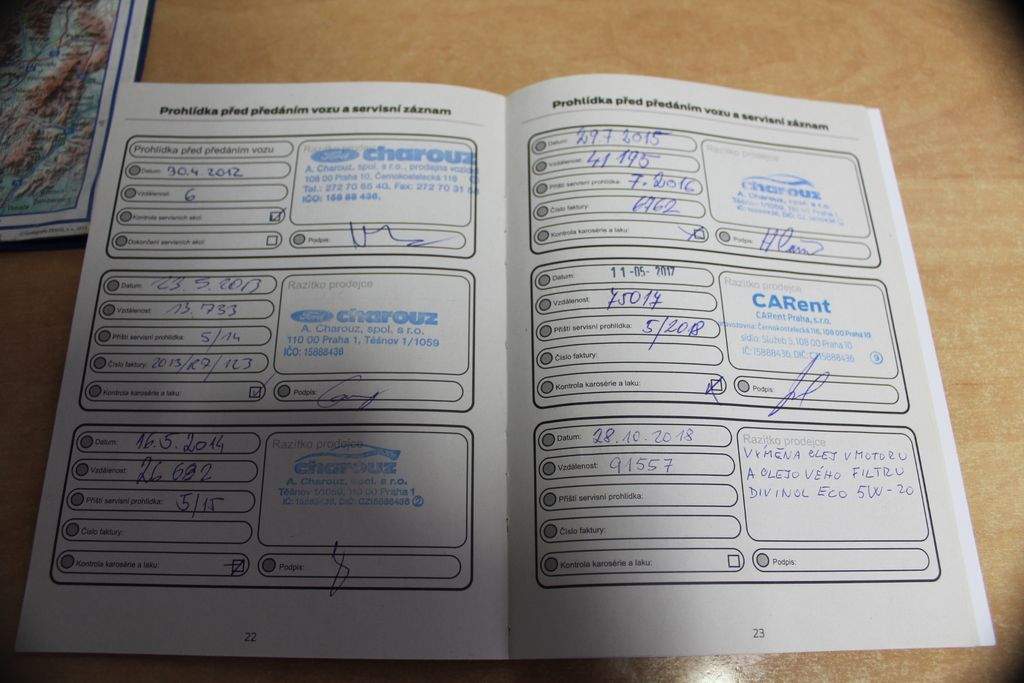 Prohlídka před předáním vozu a servisní záznam
Prohlídka před předáním vozu
Datum: 30.4. 2012
Vzdálenost: 6
Kontrola servisních akcí:
Dokončení servisních akcí:
Razítko prodejce
Ford charouz
A. Charouz, spol. s r.o., prodejna vozidel
108 00 Praha 10, Černokostelecká 116
Tel.: 272 70 65 40, Fax: 272 70 31
IČO: 158 88 436,
Podpis:
Datum: 23.5.2013
Vzdálenost: 13.733
Příští servisní prohlídka: 5/14
Číslo faktury: 2013/RZ/123
Kontrola karosérie a laku:
Razítko prodejce
Ford charouz
A. Charouz, spol. s r.o.
110 00 Praha 1, Těšnov 1/1059
IČO: 15888436
Podpis:
Datum: 16.5.2014
Vzdálenost: 26 692
Příští servisní prohlídka: 5/15
Číslo faktury:
Kontrola karosérie a laku:
Razítko prodejce
charouz
A. Charouz, spol. s r.o.
Těšnov 1/1059, 110 00 Praha 1
IČ: 15888436, DIČ: CZ15888436 2
Podpis:
22
Prohlídka před předáním vozu a servisní záznam
Datum: 29.7.2015
Vzdálenost: 41 195
Příští servisní prohlídka: 7.2016
Číslo faktury: 6762
Kontrola karosérie a laku:
Razítko prodejce
charouz
A. Charouz, spol. s r.o.
Těšnov 1/1059, 110 00 Praha 1
Podpis:
Datum: 11-05-2017
Vzdálenost: 75017
Příští servisní prohlídka: 5/2018
Číslo faktury:
Kontrola karosérie a laku:
Razítko prodejce
CARent
CARent Praha, s.r.o.
provozovna: Černokostelecká 116, 108 00 Praha 10
sídlo: Služeb 3, 108 00 Praha 10
IČ: 15888436, DIČ: CZ15888436 9
Podpis:
Datum: 28.10.2018
Vzdálenost: 91557
Příští servisní prohlídka:
Číslo faktury:
Kontrola karosérie a laku:
Razítko prodejce
VÝMĚNA OLEJ V MOTORU
A OLEJOVÉHO FILTRU
DIVINOL ECO 5W-20
Podpis:
23